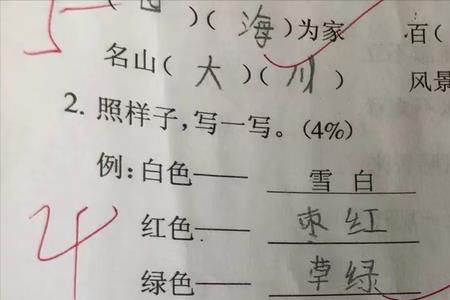 5 ( )( 海 )为家 百(
名山( 大 )( 川 ) 风景
2. 照样子,写一写。(4%)
例:白色—— 雪 白
4 红色—— 枣 红
绿色—— 草 绿